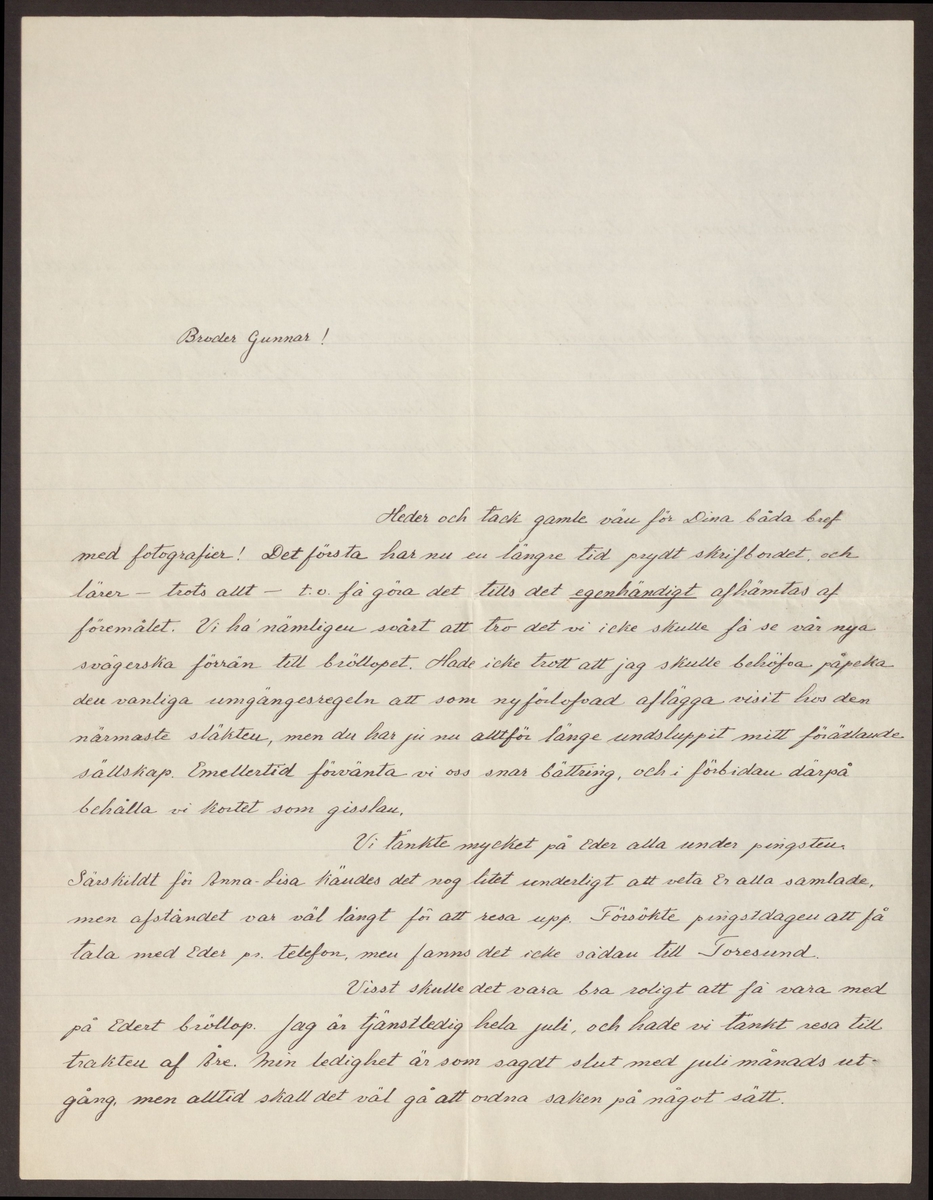 Broder Gunnar!
Heder och tack gamle vän för Dina båda bref
med fotografier! Det första har nu en längre tid prydt skrifbordet, och
lärer – trots allt – t.v. få göra det tills det egenhändigt afhämtas af
föremålet. Vi ha' nämligen svårt att tro det vi icke skulle få se vår nya
svägerska förrän till bröllopet. Hade icke trott att jag skulle behöfva påpeka
den vanliga umgängesregeln att som nyförlofvad aflägga visit hos den
närmaste släkten, men du har ju nu alltför länge undsluppit mitt förädlande
sällskap. Emellertid förvänta vi oss snar bättring, och i förbidan därpå
behålla vi kortet som gisslan.
Vi tänkte mycket på Eder alla under pingsten.
Särskildt för Anna-Lisa kändes det nog litet underligt att veta Er alla samlade,
men afståndet var väl långt för att resa upp. Försökte pingstdagen att få
tala med Eder pr. telefon, men fanns det icke sådan till Toresund.
Visst skulle det vara bra roligt att få vara med
på Edert bröllop. Jag är tjänstledig hela juli, och hade vi tänkt resa till
trakten af Åre. Min ledighet är som sagdt slut med juli månads ut-
gång, men alltid skall det väl gå att ordna saken på något sätt.